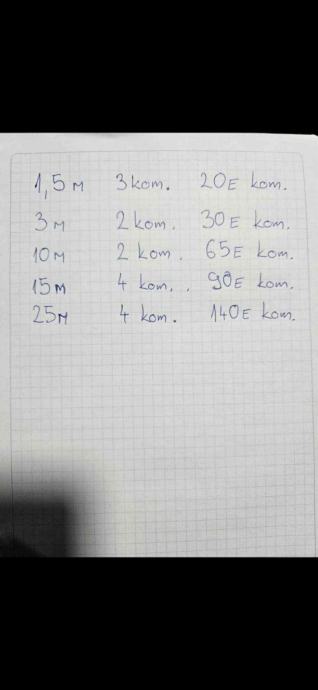 1,5м 3 kom. 20E kom.
3м 2 kom. 30E kom.
10м 2 kom. 65E kom.
15м 4 kom. . 90E kom.
25м 4 kom. 140E kom.